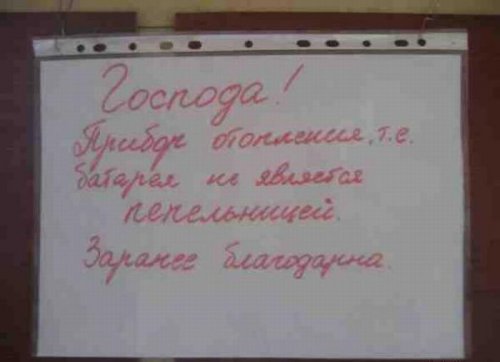 Господа!
Прибор отопления, т.е.
батарея не является
пепельницей.
Заранее благодарна.